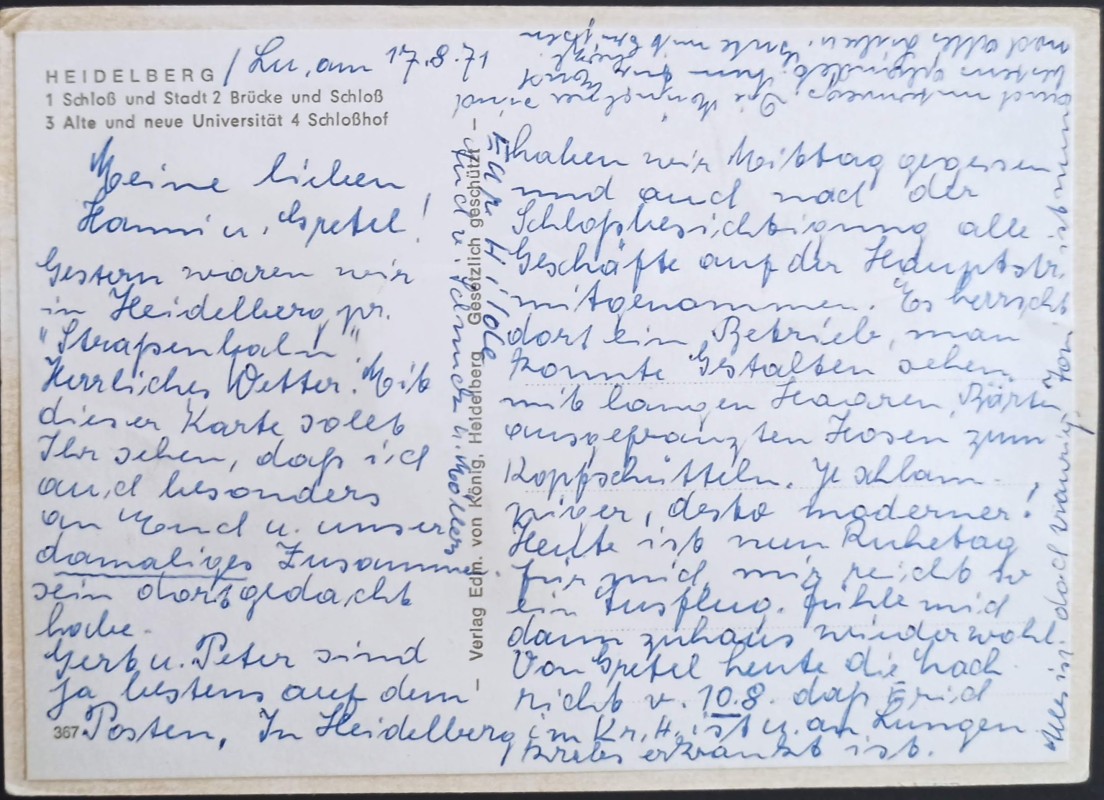 HEIDELBERG / Lu, am 17.8.71
1 Schloß und Stadt 2 Brücke und Schloß
3 Alte und neue Universität 4 Schloßhof
Meine lieben
Hanni u. Gretel!
Gestern waren wir
in Heidelberg pr.
"Straßenbahn"
Herrliches Wetter. Mit
dieser Karte sollt
Ihr sehen, daß ich
auch besonders
an Euch u. unser
damaliges Zusammen
sein dort gedacht
habe.
Gert u. Peter sind
ja bestens auf dem
Posten, In Heidelberg
367
haben wir Mittag gegessen
und auch nach der
Schloßbesichtigung alle
Geschäfte auf der Hauptstr.
mitgenommen. Es herrscht
dort ein Betrieb, man
konnte Gestalten sehen
mit langen Haaren, Bärten,
ausgefranzten Hosen zum
Koppschütteln. Je schlam-
piger, desto moderner!
Heute ist nun Ruhetag
für mich, mir reicht so
ein Ausflug. Fühle mich
dann zuhaus wieder wohl.
Von Gretel heute die Nach
richt v. 10.8. daß Erich
im Kr. H. ist u. an Lungen
krebs erkrankt ist.
Alles ist doch traurig, Toni ist nun
auch
Eure Hilde
Verlag Edm. von König, Heidelberg Gesetzlich geschützt